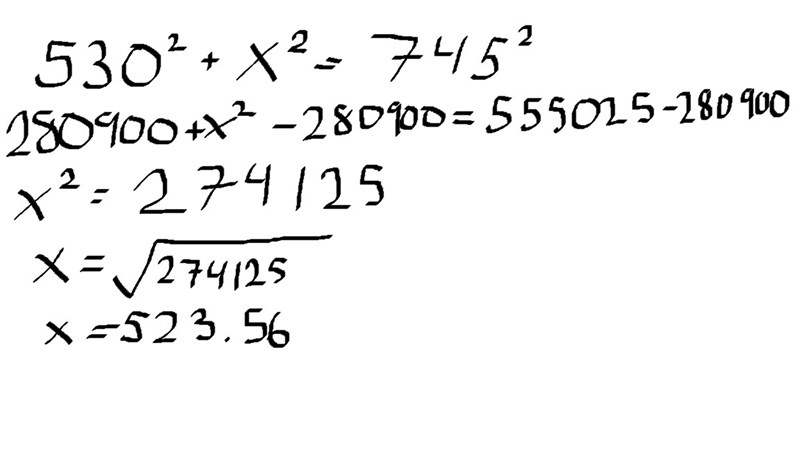 530² + x² = 745²
280900+x² - 280900 = 555025 - 280900
x² = 274125
x = √274125
x = 523.56